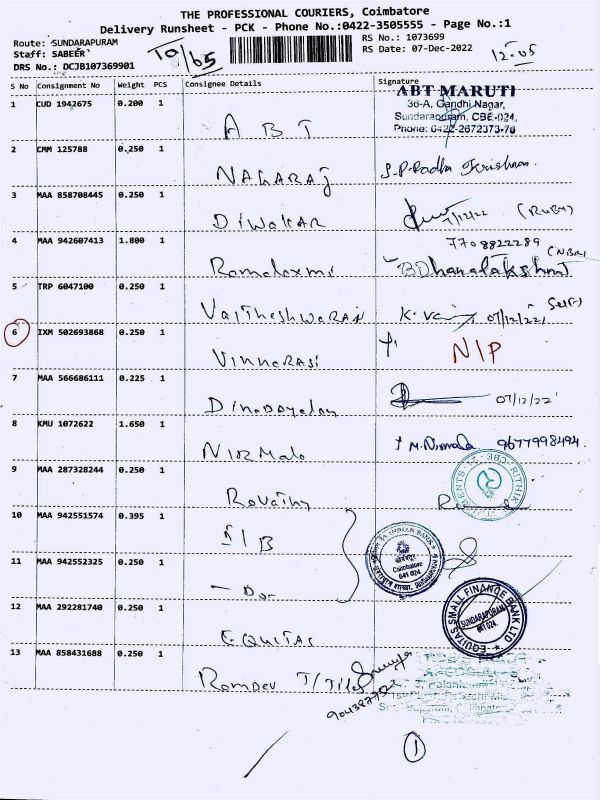 THE PROFESSIONAL COURIERS, Coimbatore
Delivery Runsheet - PCK - Phone No.:0422-3505555 - Page No.:1
Route: SUNDARAPURAM
RS No.: 1073699
Staff: SABEER
RS Date: 07-Dec-2022
DRS No.: DCJB107369901
12-05
S No Consignment No Weight PCS Consignee Details Signature
ABT MARUTI
36-A, Gandhi Nagar,
Sundarapuram, CBE-024,
Phone: 0422-2672373-76
1 CUD 1942675 0.200 1 ABT
2 CMM 125788 0.250 1 NAGARAJ
3 MAA 858708445 0.250 1 DIWAKAR 7/12/22
7708822289
4 MAA 942607413 1.800 1 Ramalaxmi BDhanalakshmi
5 TRP 6047100 0.250 1 VAITHESHWARAN 07/12/22
6 IXM 502693868 0.250 1 VINNARASI NIP
7 MAA 566686111 0.225 1 Dinadayalan 07/12/22
8 KMU 1072622 1.650 1 NIRMALA M.Nirmala 9677998494
9 MAA 287328244 0.250 1 Revathy
10 MAA 942551574 0.395 1 IIB
INDIAN BANK
Coimbatore
641 024
11 MAA 942552325 0.250 1 Do
12 MAA 292281740 0.250 1 EQUITAS
EQUITAS SMALL FINANCE BANK LTD
SUNDARAPURAM,
641 024.
13 MAA 858431688 0.250 1 Ramdev
1